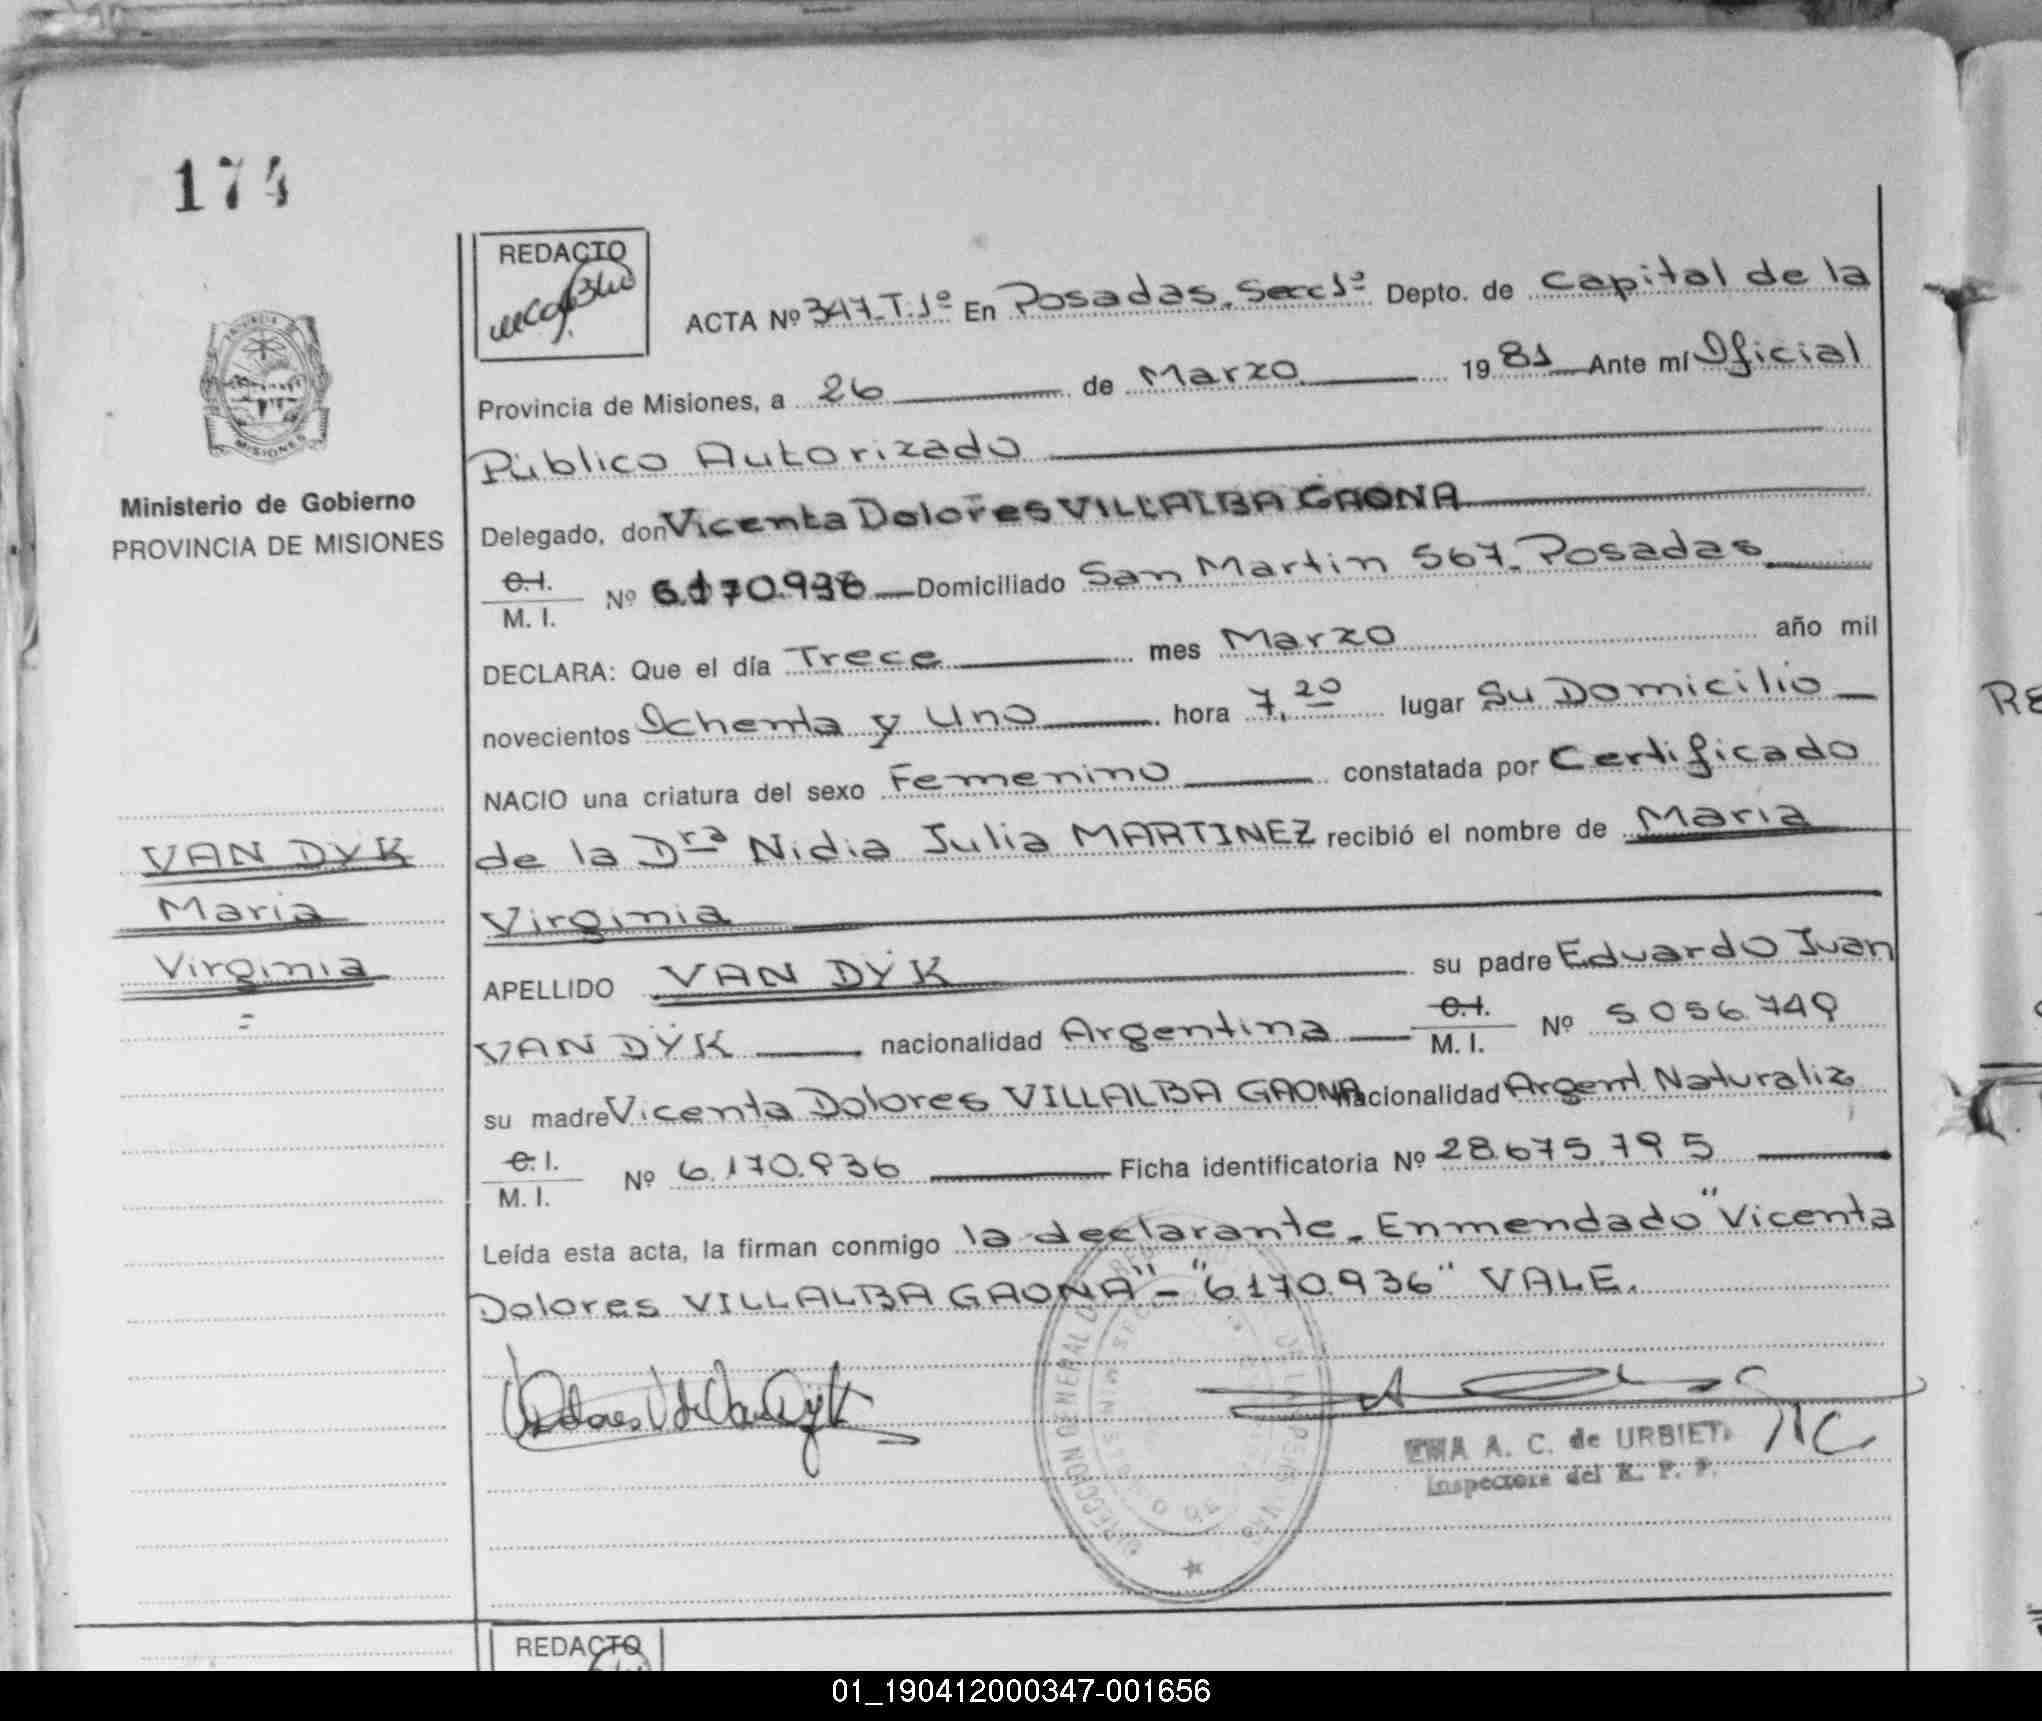 174
REDACTO
ACTA Nº 347-T.1º En Posadas. Secc 1ª Depto. de Capital de la
Provincia de Misiones, a 26 de Marzo 1981 Ante mí Oficial
Público Autorizado
MISIONES
Ministerio de Gobierno
PROVINCIA DE MISIONES
Delegado, don Vicenta Dolores VILLALBA GAONA
C.I.
M. I. Nº 6.170.936 Domiciliado San Martin 567. Posadas
DECLARA: Que el día Trece mes Marzo año mil
novecientos Ochenta y Uno hora 7,20 lugar Su Domicilio
NACIO una criatura del sexo Femenino constatada por Certificado
de la Dra Nidia Julia MARTINEZ recibió el nombre de Maria
Virginia
VAN DYK
Maria
Virginia
APELLIDO VAN DŸK su padre Eduardo Juan
VAN DŸK nacionalidad Argentina C.I.
M. I. Nº 5056.749
su madre Vicenta Dolores VILLALBA GAONA nacionalidad Argent. Naturaliz
C.I.
M. I. Nº 6.170.936 Ficha identificatoria Nº 28.675.795
Leída esta acta, la firman conmigo la declarante. Enmendado "Vicenta
Dolores VILLALBA GAONA" - "6170.936" VALE.
DIRECCION GENERAL DE
A. C. de URBIET
Inspectora del R. P. P.
REDACTO
RE
01_190412000347-001656